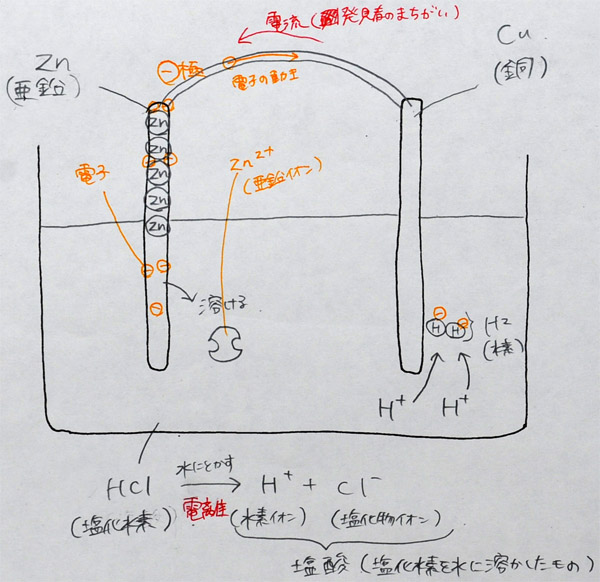 電流 (発見者のまちがい)
Zn
(亜鉛)
Cu
(銅)
⊖極
電子の動き
Zn
Zn
Zn
Zn
Zn
電子
Zn²⁺
(亜鉛イオン)
溶ける
H H } H₂
(水素)
H⁺ H⁺
HCl 水にとかす → H⁺ + Cl⁻
電離
(塩化水素) (水素イオン) (塩化物イオン)
塩酸 (塩化水素を水に溶かしたもの)